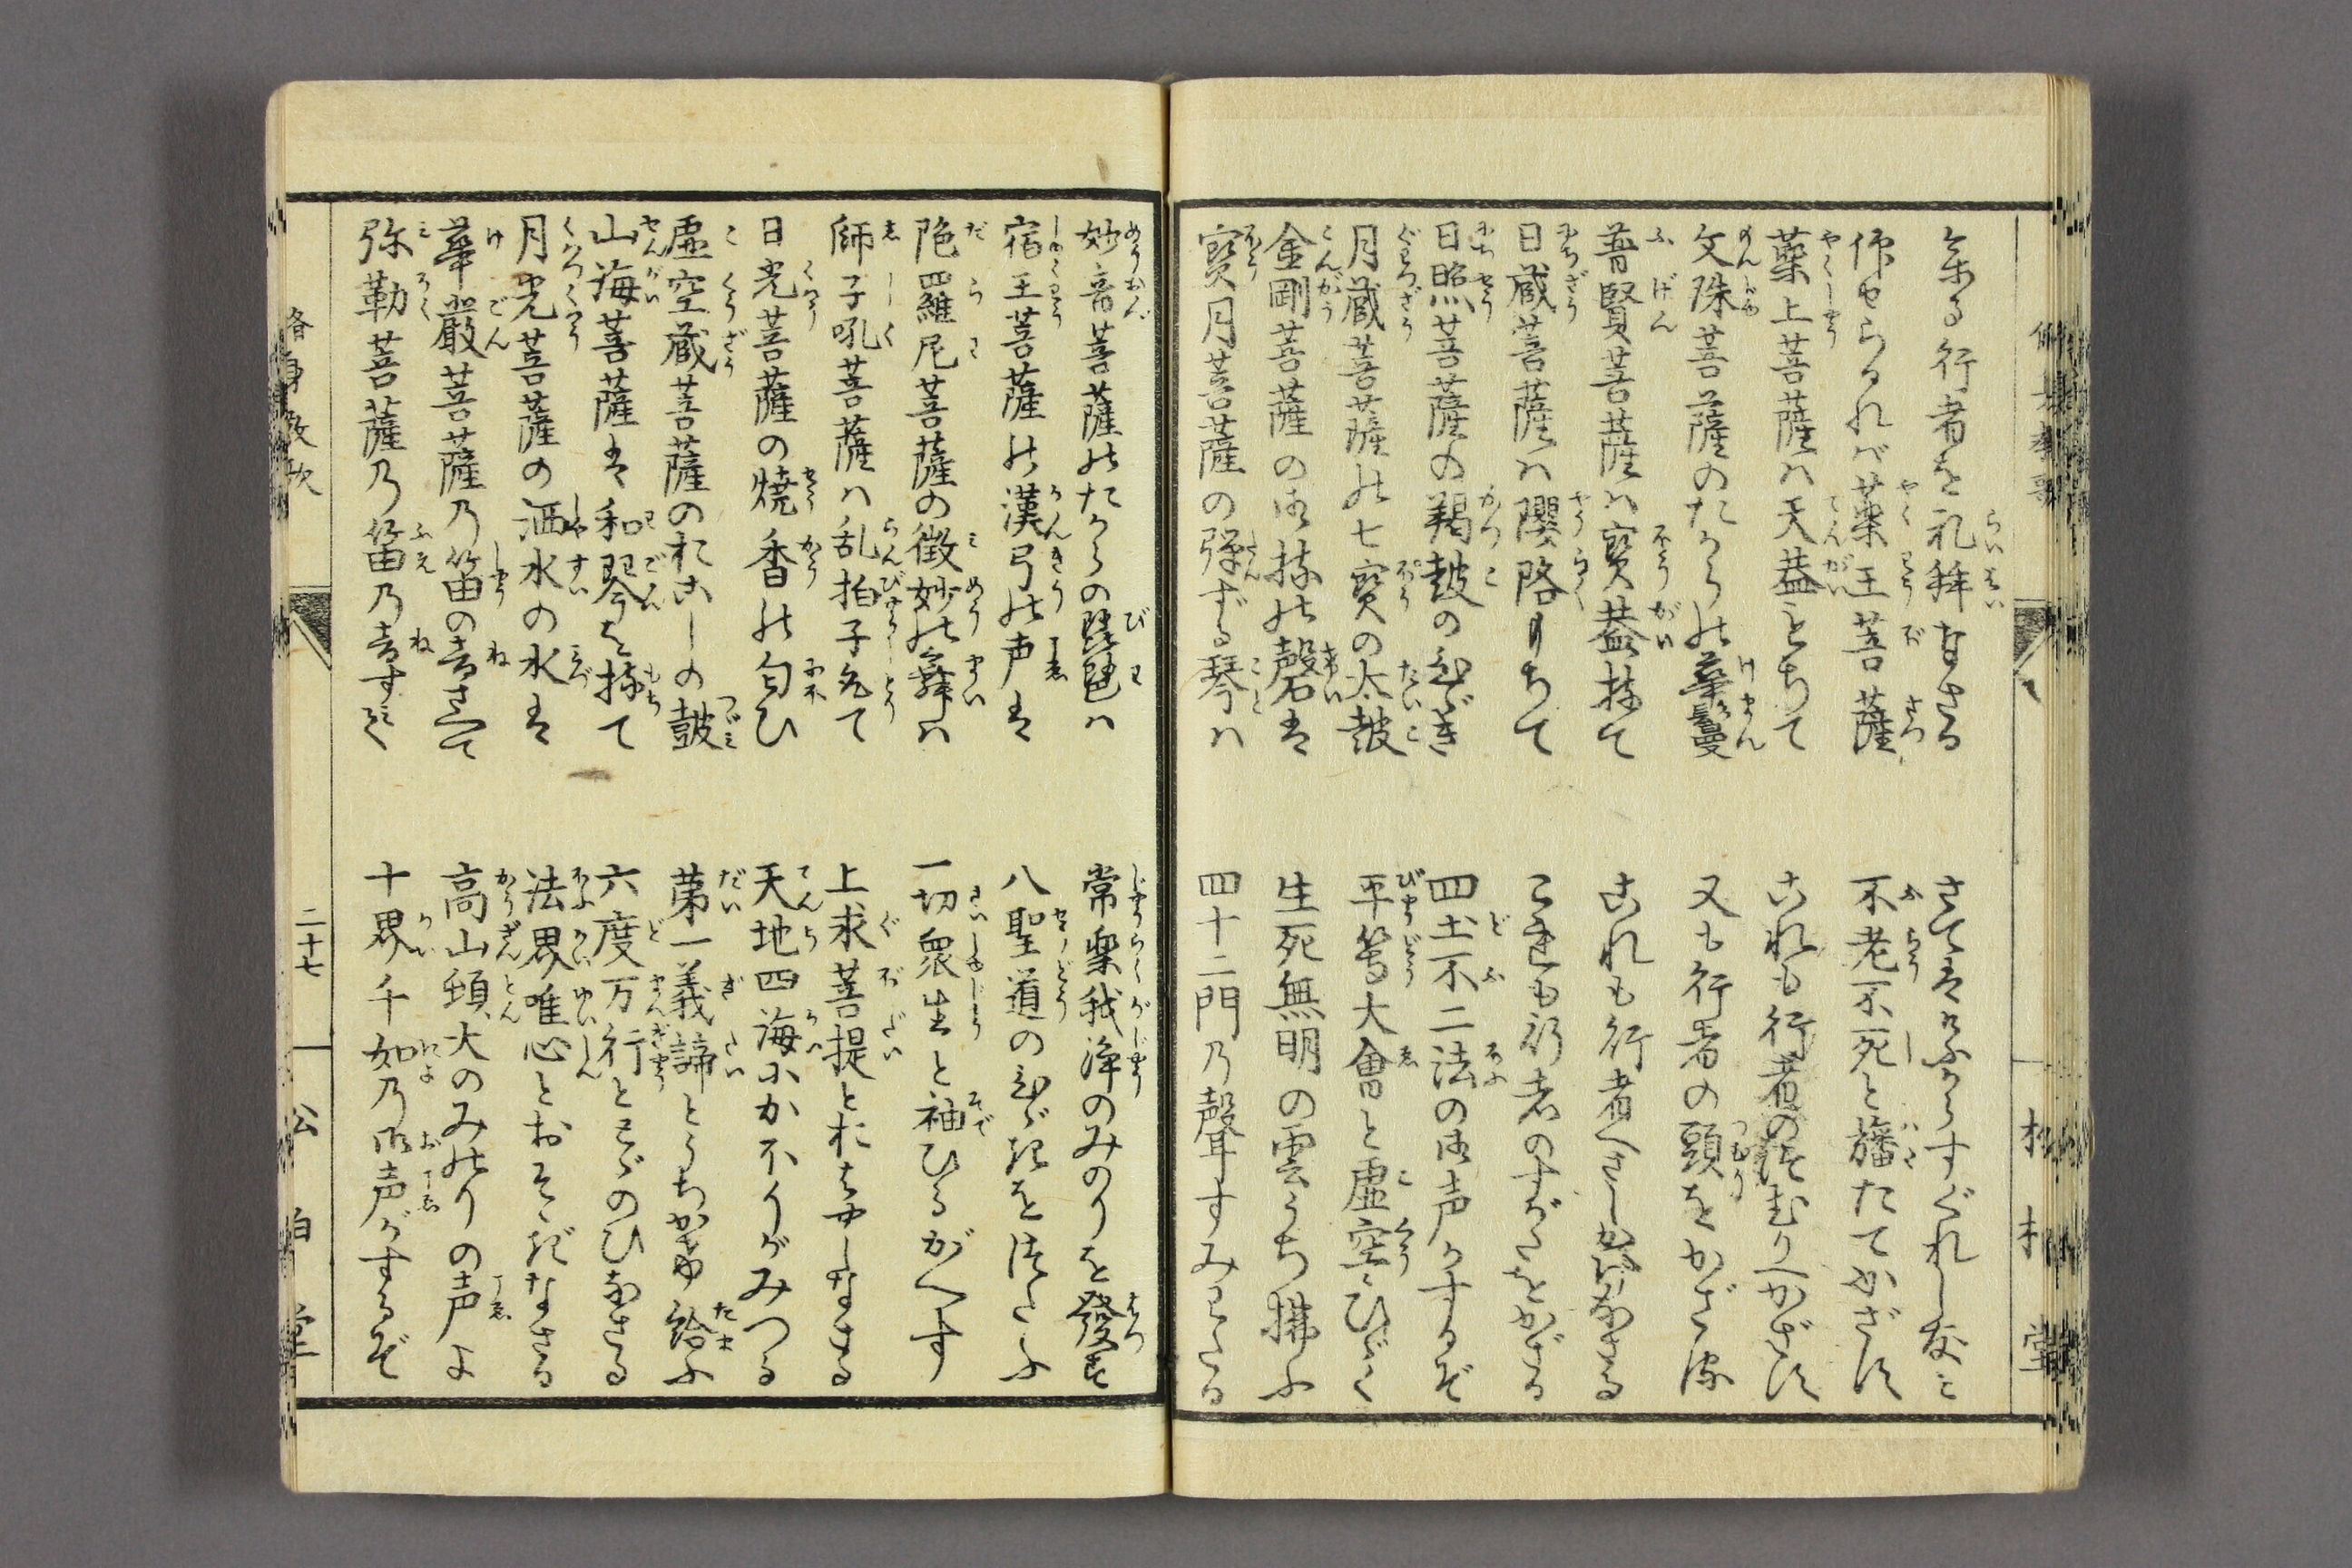 行者を礼拝なさる
れバ薬王菩薩
薬上菩薩ハ天蓋もちて
文殊菩薩のたからの華鬘
普賢菩薩ハ寳蓋持て
日蔵菩薩ハ瓔珞もちて
日照菩薩の羯鼓のひゞき
月蔵菩薩の七寳の太鼓
金剛菩薩の御持の磬は
寳月菩薩の弾ずる琴ハ
さては すぐれし
不老不死と旛たてかざす
これも行者の かざす
又も行者の頭をかざる
これも行者へさしかけなさる
これも行者のすがたをかざる
四土不二法の御声がするぞ
平等大會と虚空にひゞく
生死無明の雲うち拂ふ
四十二門乃聲すみわたる
松柏堂
妙音菩薩のたからの琵琶ハ
宿王菩薩の漢弓の声は
陀羅尼菩薩の微妙の舞ハ
師子吼菩薩ハ乱拍子完て
日光菩薩の焼香の匂ひ
虚空蔵菩薩のおこしの鼓
山海菩薩は和琴を持て
月光菩薩の洒水の水は
華嚴菩薩乃笛の音さへて
弥勒菩薩乃笛乃音すごく
常楽我浄のみのりを發す
八聖道のひゞきをつたふ
一切衆生と袖ひるがへす
上求菩提とおはやしなさる
天地四海にかをりがみつる
第一義諦とうちかなで給ふ
六度万行とことのひなさる
法界唯心とおそゝぎなさる
高山頓大のみのりの声よ
十界千如乃御声がするぞ
二十七
松柏堂